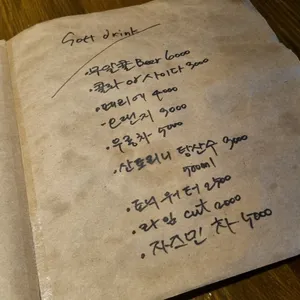 Soft drink
·무알콜Beer 6000
·콜라 or 사이다 3000
·페리에 4000
·오렌지 3000
·우롱차 5000
·산토리니 탄산수 3000
500ml
·토닉워터 2500
·라임 cut 2000
·자스민 차 5000